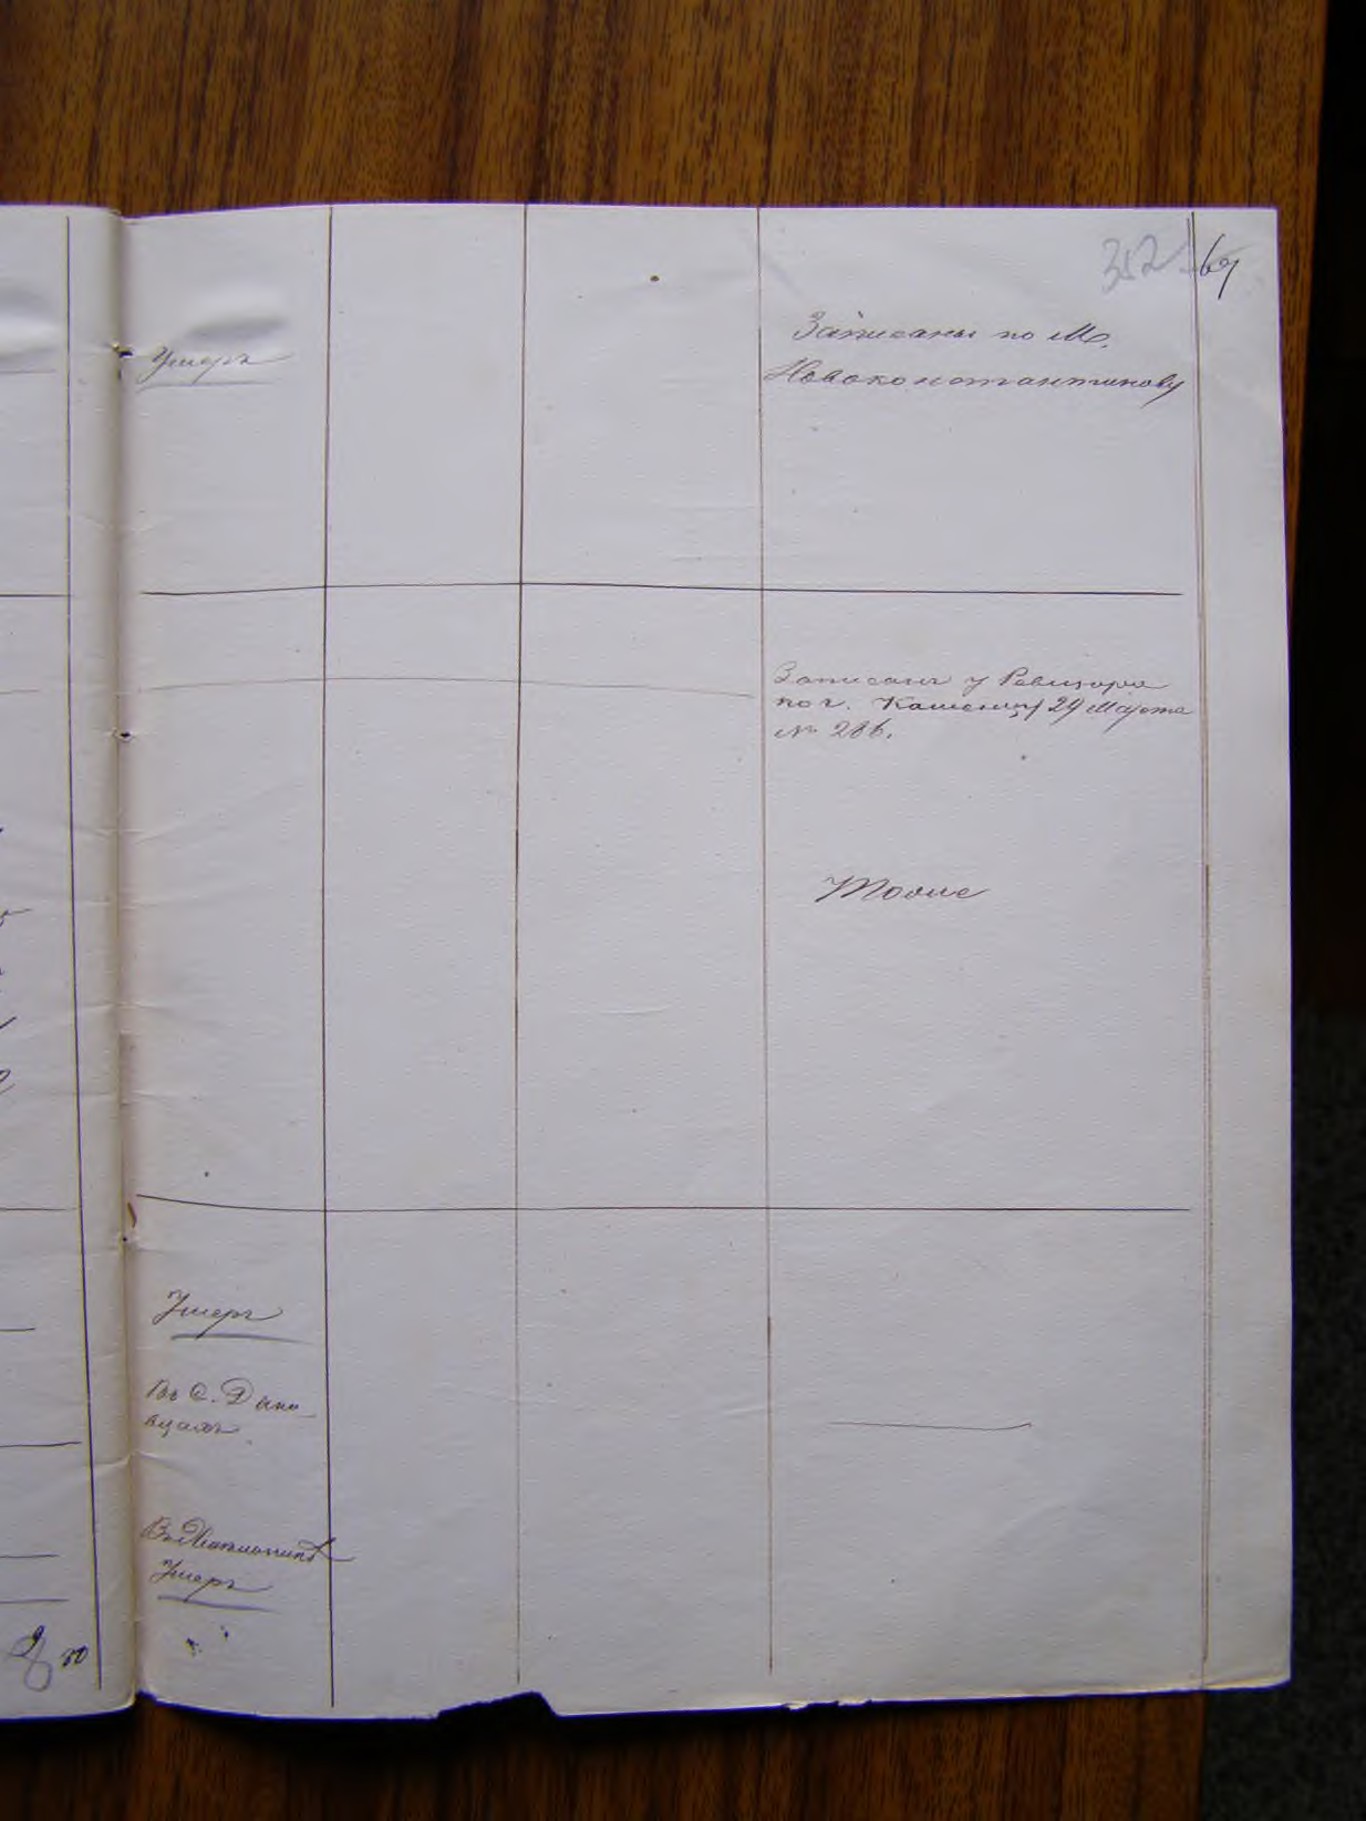 352 67
Умеръ
Записаны по М.
Новоконстантинову
Записанъ у Ревизора
по г. Каменцу 29 Марта
№ 286.
Тоже
Умеръ
Въ С. Дыно-
вцахъ
Умеръ
50